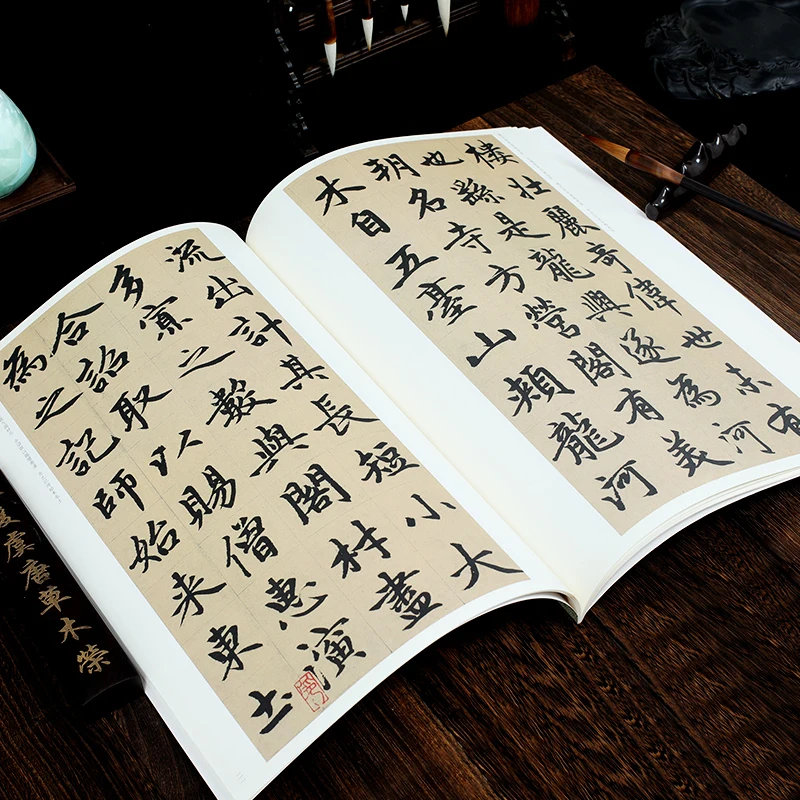 樓壯麗奇偉世未有
也繇是龍興遂為河
朔名寺方營閣有美
木自五臺山頰龍河
流出計其長短小大
多寡之數與閣材盡
合詔取以賜僧惠演
為之記師始来東土
虞唐草木榮